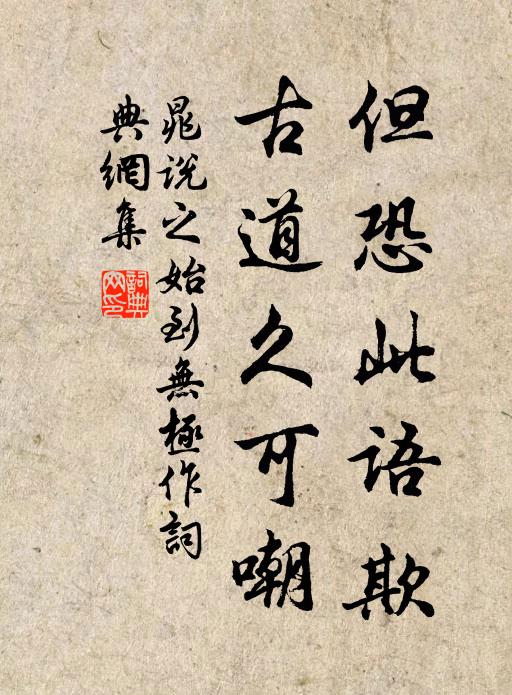 但恐此语欺
古道久可嘲
晁说之始到無極作詞
典網集
詞典网印